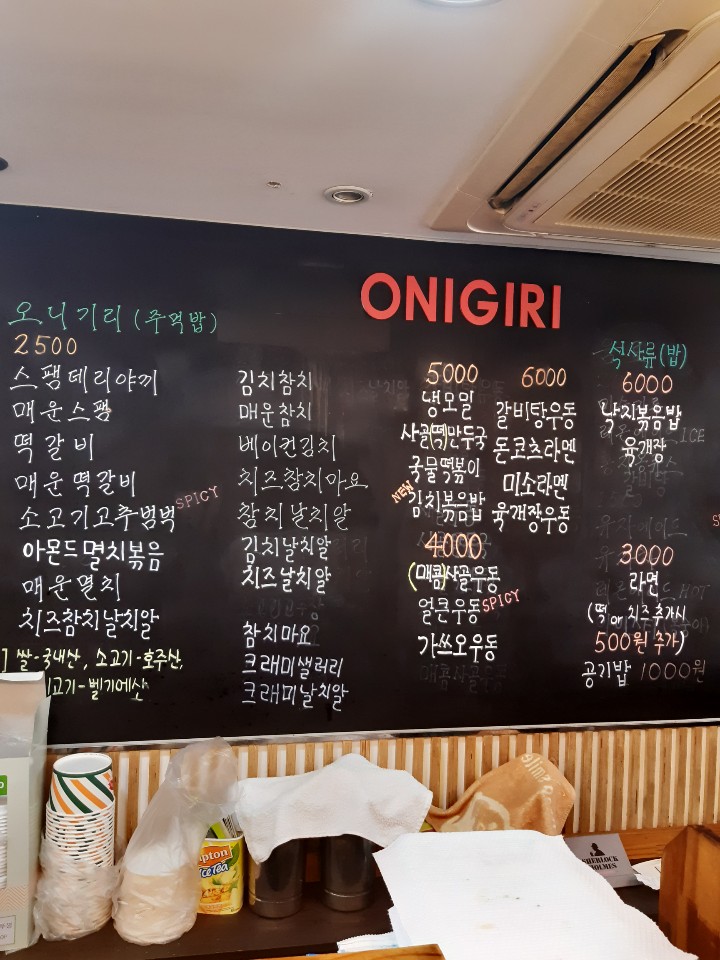 ONIGIRI
오니기리 (주먹밥)
2500
스팸데리야끼
매운스팸
떡갈비
매운떡갈비
소고기고추범벅
SPICY
아몬드멸치볶음
매운멸치
치즈참치날치알
쌀-국내산, 소고기-호주산,
고기-벨기에산
김치참치
매운참치
베이컨김치
치즈참치마요
참치날치알
김치날치알
치즈날치알
참치마요
크래미샐러리
크래미날치알
5000
냉모밀
사골(떡)만두국
국물떡볶이
NEW
김치볶음밥
4000
(매콤)사골우동
얼큰우동
SPICY
가쓰오우동
6000
갈비탕우동
돈코츠라멘
미소라멘
육개장우동
식사류(밥)
6000
낙지볶음밥
육개장
3000
라면
(떡 or 치즈추가시
500원 추가)
공기밥 1000원
ICE
HOT
Lipton
Ice Tea
smile
SHERLOCK
HOLMES